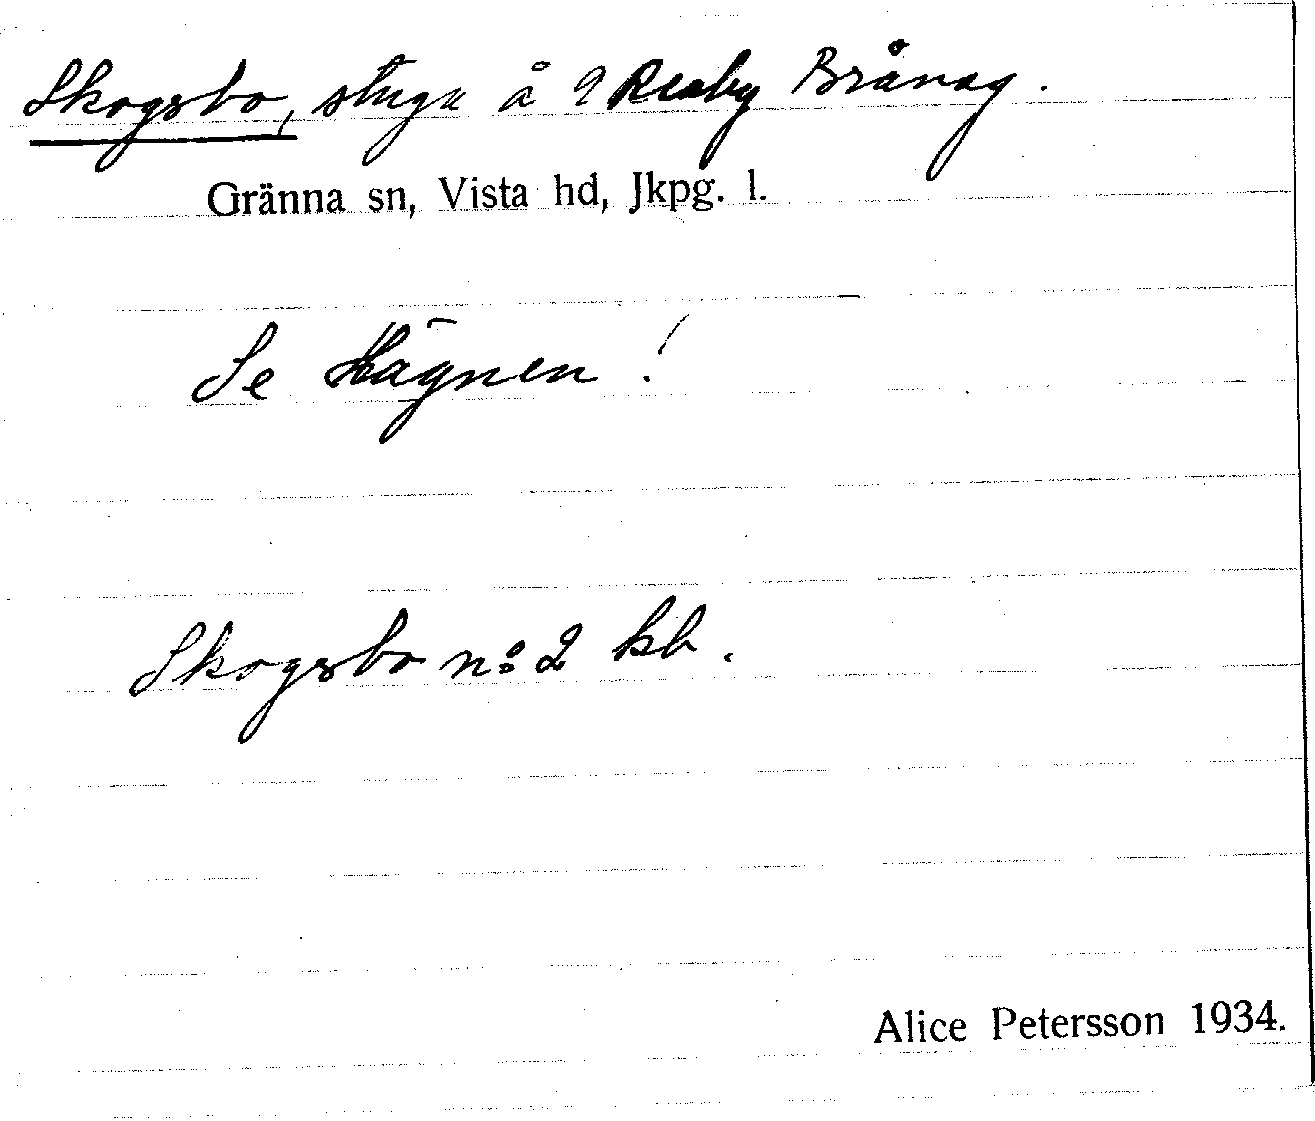 Skogsbo, stuga å 2 Reaby Brånag.
Gränna sn, Vista hd, Jkpg. l.
Se Hägnen!
Skogsbo no 2 kb.
Alice Petersson 1934.